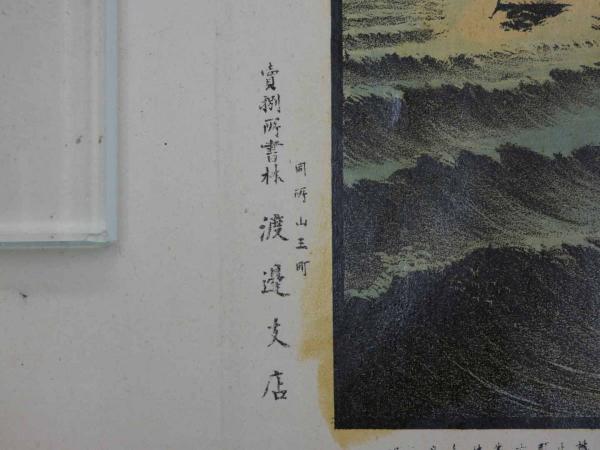 同所山王町
賣捌所書林 渡邉支店